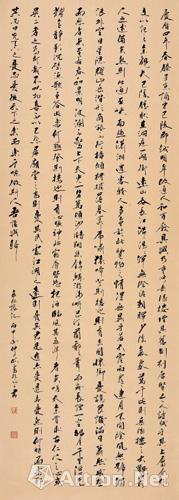 慶曆四年春滕子京謫守巴陵郡越明年政通人和百廢具興乃重修岳陽樓增其舊制刻唐賢今人詩賦于其上屬予作
文以記之予觀夫巴陵勝狀在洞庭一湖銜遠山吞長江浩浩湯湯橫無際涯朝暉夕陰氣象萬千此則岳陽樓之大觀也前
人之述備矣然則北通巫峽南極瀟湘遷客騷人多會於此覽物之情得無異乎若夫霪雨霏霏連月不開陰風怒號
濁浪排空日星隱耀山岳潛形商旅不行檣傾楫摧薄暮冥冥虎嘯猿啼登斯樓也則有去國懷鄉憂讒畏譏滿目蕭然感極而悲
者矣至若春和景明波瀾不驚上下天光一碧萬頃沙鷗翔集錦鱗游泳岸芷汀蘭郁郁青青而或長煙一空皓月千里浮光躍金
靜影沉璧漁歌互答此樂何極登斯樓也則有心曠神怡寵辱偕忘把酒臨風其喜洋洋者矣嗟夫予嘗求古仁人之心或
異二者之為何哉不以物喜不以己悲居廟堂之高則憂其民處江湖之遠則憂其君是進亦憂退亦憂然則何時而樂耶
其必曰先天下之憂而憂後天下之樂而樂乎噫微斯人吾誰與歸
岳陽樓記